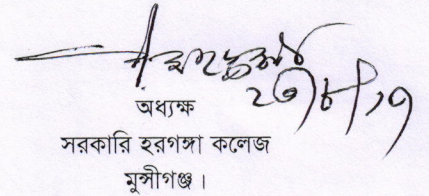 অধ্যক্ষ
সরকারি হরগঙ্গা কলেজ
মুন্সীগঞ্জ।